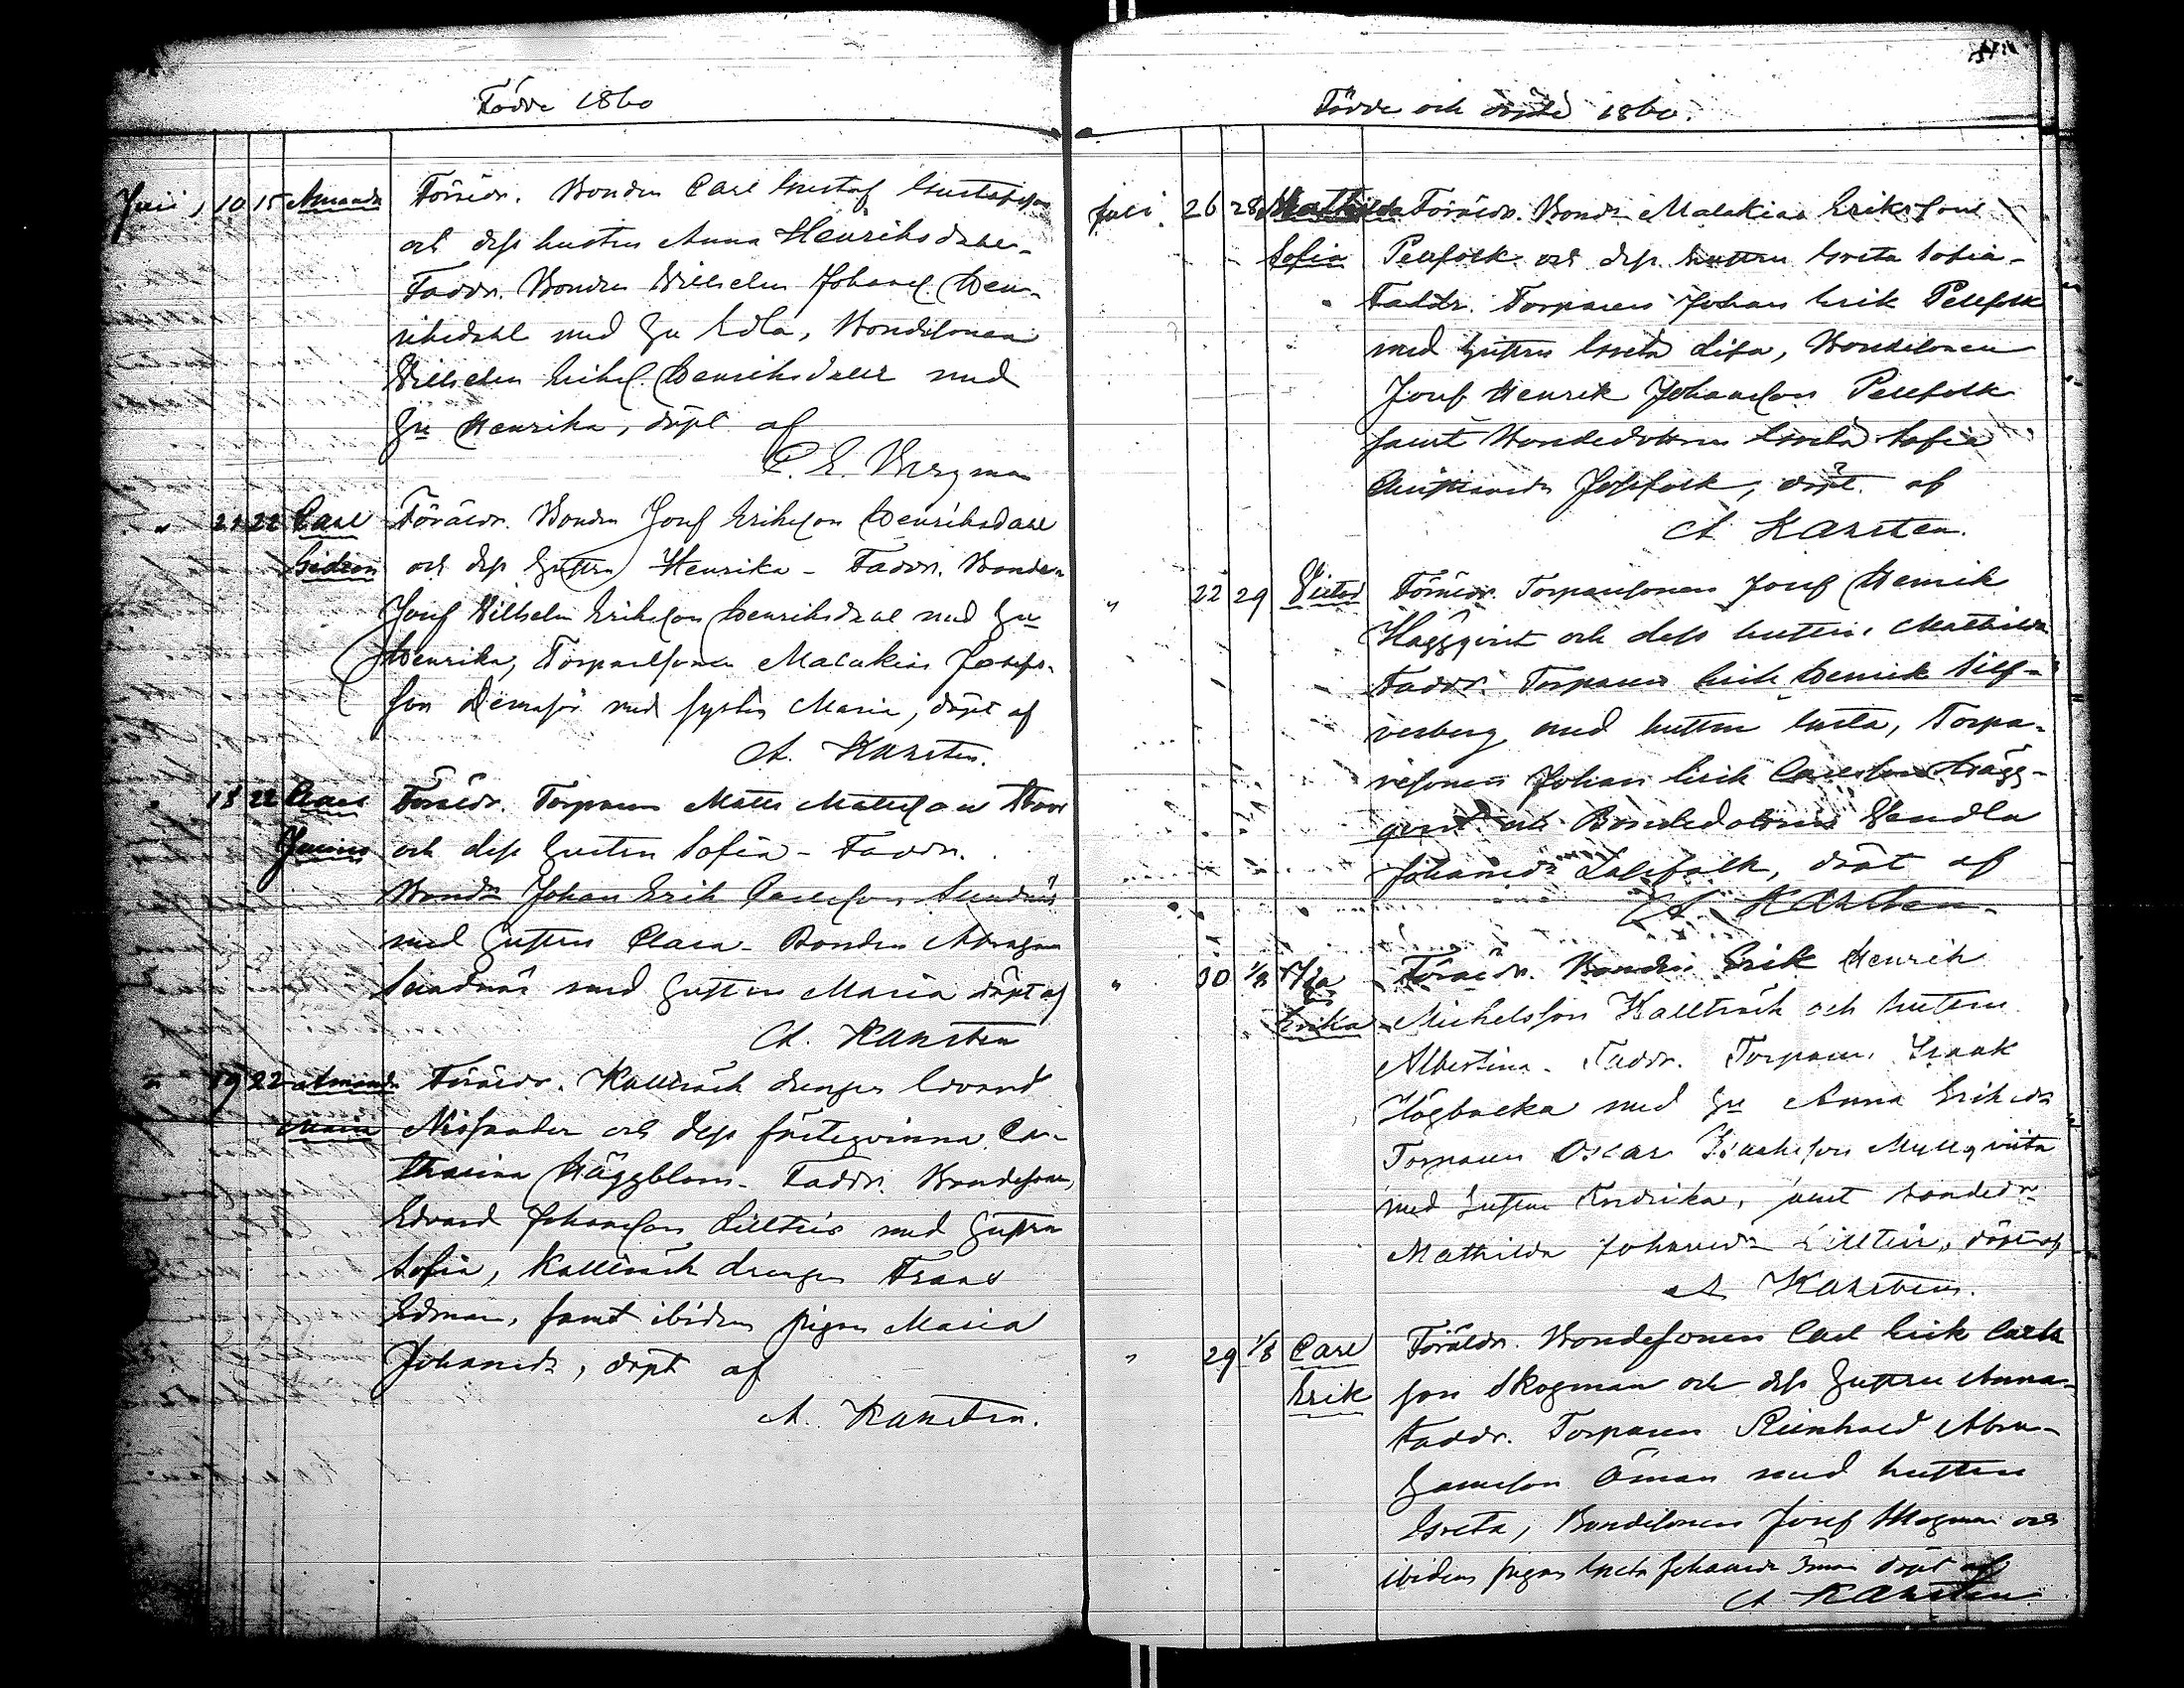 Födde 1860
Juli 10 15 Amanda Föräldr. Bonden Carl Gustaf Gustafsson
och dess hustru Anna Henriksdahl -
Faddr. Bonden Wilhelm Johans. Hen-
riksdahl med hu Edla, Bondesonen
Wilhelm Eriks. Henriksdahl med
hu Henrika, döpt af
C. E. Bergman
" 21 22 Carl Föräldr. Bonden Josef Eriksson Henriksdahl
Gideon och dess hustru Henrika - Faddr. Bonden
Josef Wilhelm Eriksson Henriksdal med hu
Henrika, Torparesonen Malakias Josefs-
son med syster Maria, döpt af
A. Karsten.
" 18 22 Claes Föräldr. Torparen Matts Mattsson
Junius och dess hustru Sofia - Faddr.
Bonden Johan Erik Carlsson Sundnäs
med hustru Clara - Bonden Abraham
Sundnäs med hustru Maria döpt af
A. Karsten
" 19 22 Amanda Föräldr. Kallträsk drengen Edvard
Maria Nissander och dess fästeqvinna Ca-
tharina Häggblom - Faddr. Bondesonen
Edvard Johansson Lilltäis med hustru
Sofia, Kallträsk drengen Frans
Edman, samt ibidem pigan Maria
Johansdr, döpt af
A. Karsten.
Födde och döpte 1860.
Juli 26 28 Mathilda Föräldr. Bond. Malakias Eriksson
Sofia Pellfolk och dess hustru Greta Sofia -
Faddr. Torparen Johan Erik Pellfolk
med hustru Greta Lisa, Bondesonen
Josef Henrik Johansson Pellfolk
samt Bondedottren Greta Sofia
Josefolk, döpt af
A Karsten.
" 22 29 Victor Föräldr. Torparesonen Josef Henrik
Häggqvist och dess hustru Mathilda
Faddr. Torparen Erik Henrik Silf-
verberg med hustru Greta, Torpa-
resonen Johan Erik Carlsson Hägg-
qvist och Bondedottren Wendla
Johansdr Lassfolk, döpt af
A. Karsten.
" 30 1/8 Ida Föräldr. Bonden Erik Henrik
Erika Michelsson Kallträsk och hustru
Albertina. Faddr. Torparen Isaak
Högbacka med hu Anna Eriksdr
Torparen Oscar Isaaksson Myllyviita
med hustru Fredrika, samt bondedr
Mathilda Johansdr Lilltäis, döpt af
A Karsten.
" 29 1/8 Carl Föräldr. Bondesonen Carl Erik Carls
Erik son Skogman och dess hustru Anna -
Faddr. Torparen Reinhold Abra-
hamsson Öman med hustru
Greta, Bondesonen Josef Skogman och
ibidem pigan Greta Johansdr Öman döpt af
A Karsten